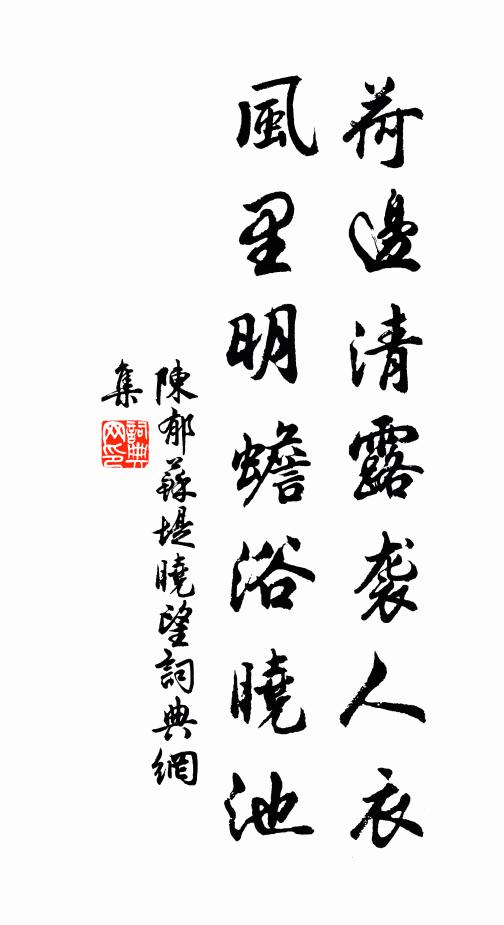 荷邊清露袭人衣
風里明蟾浴曉池
陳郁蘇堤曉望詞典網
集
詞典
网印